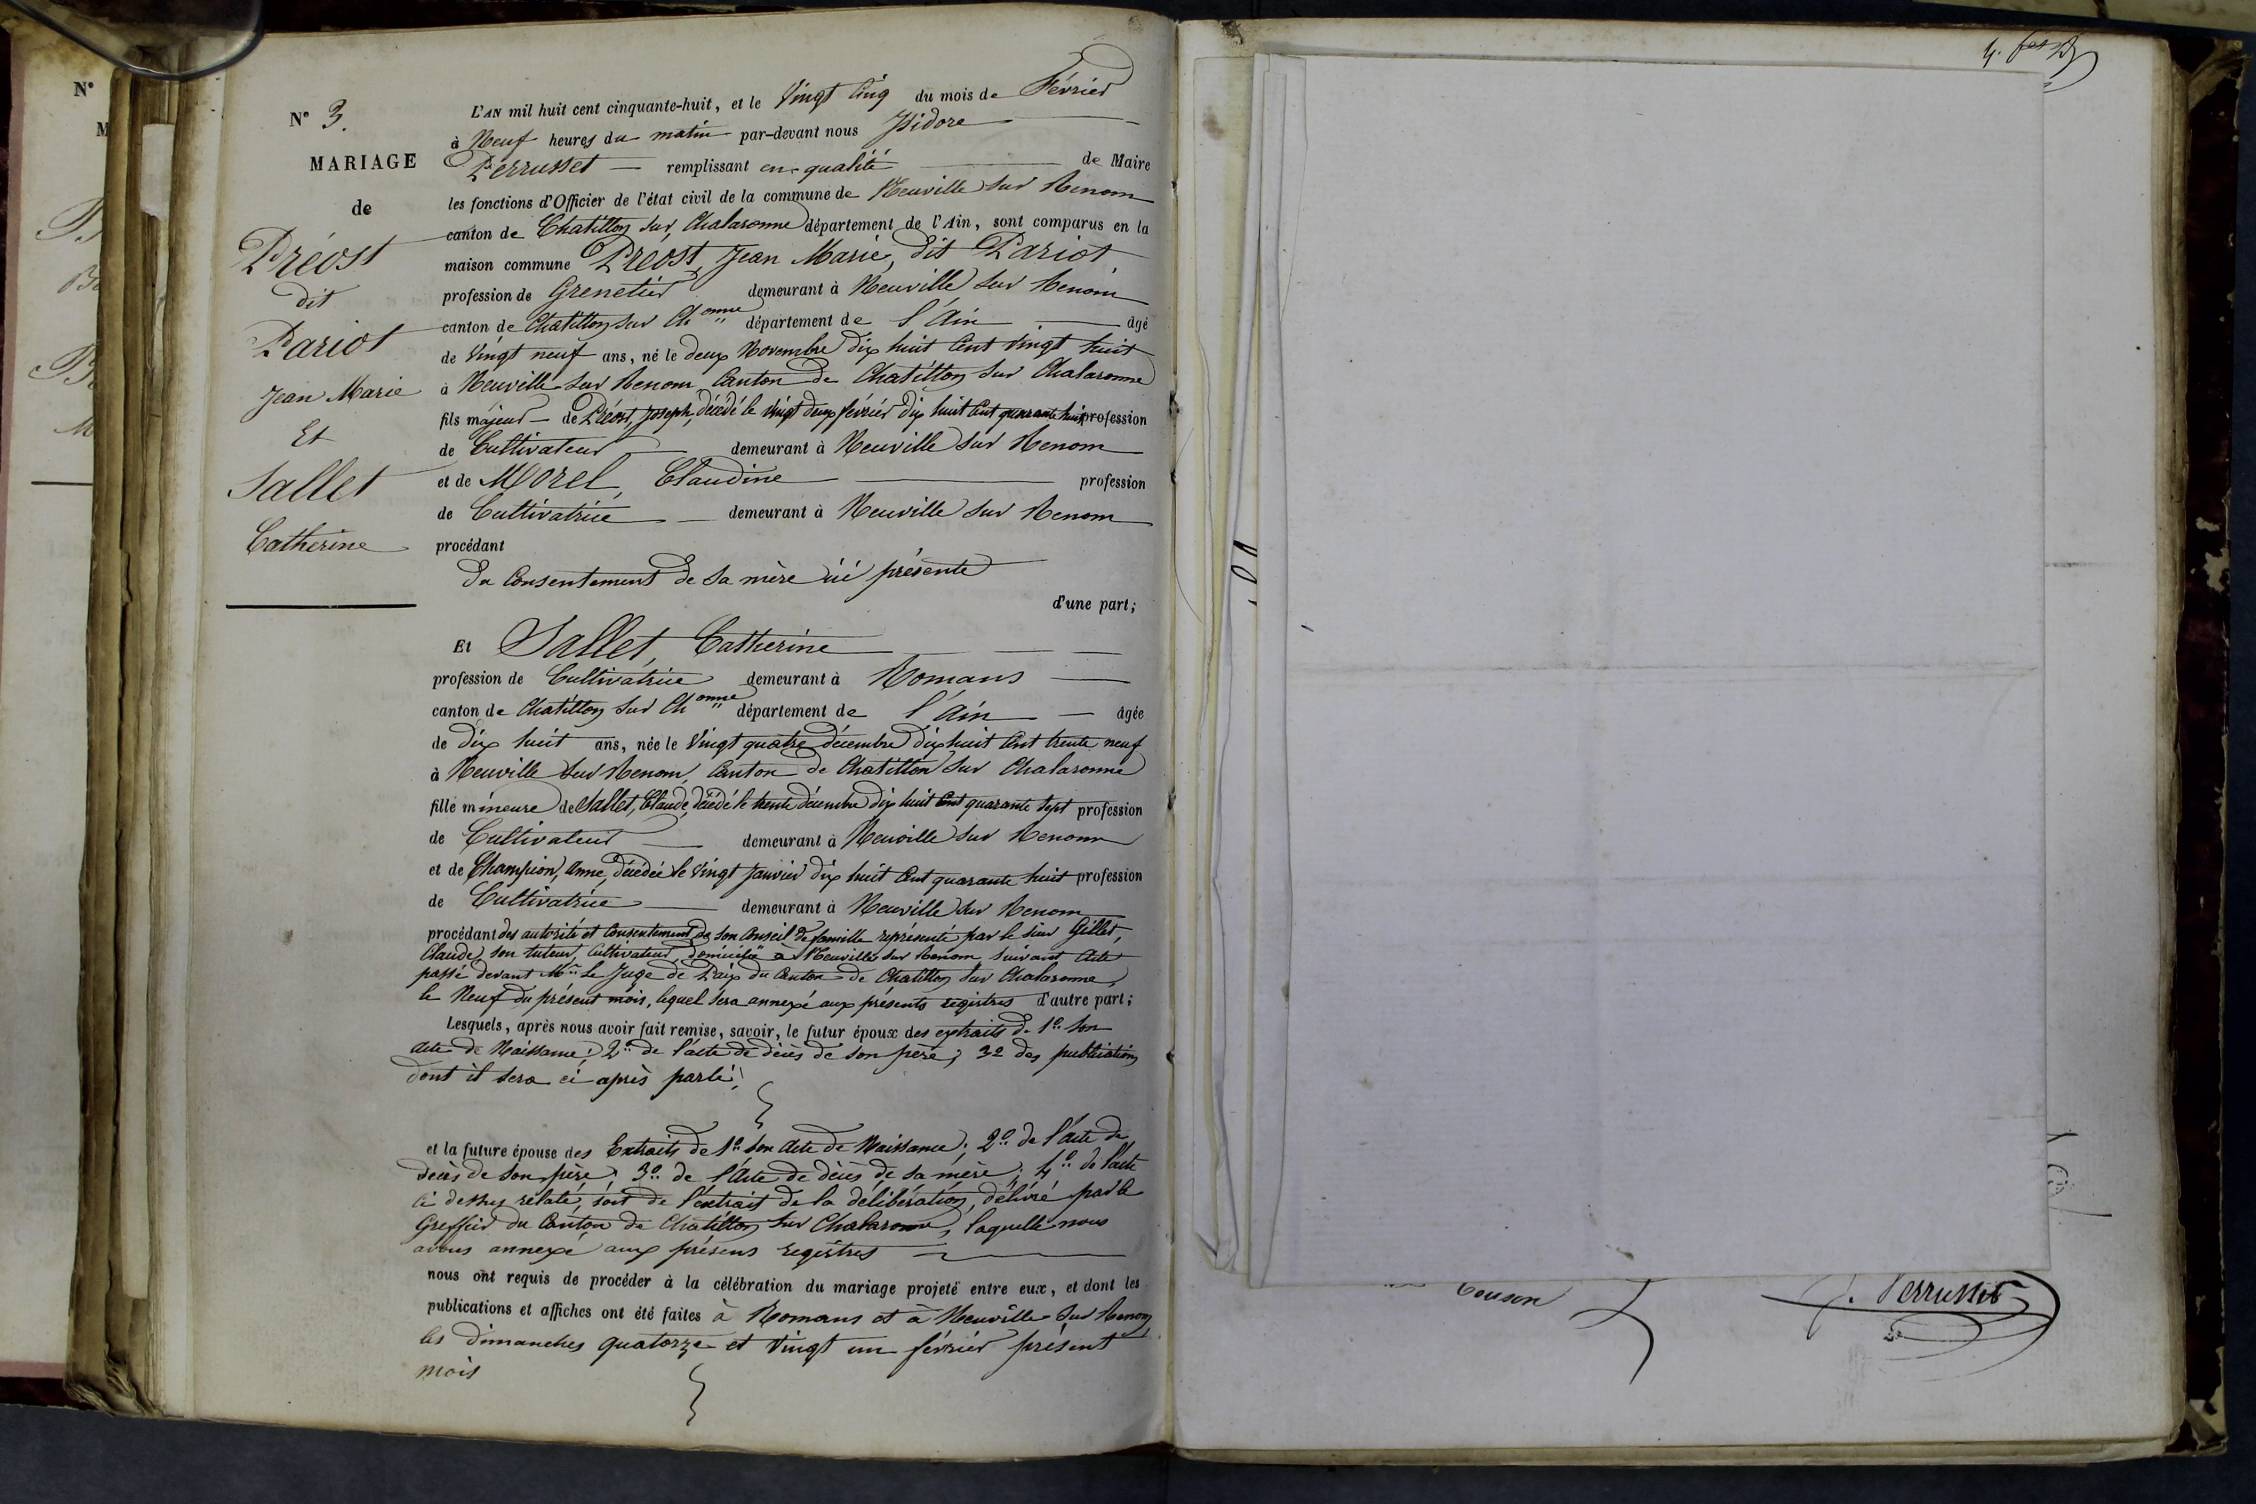 N° 3.
MARIAGE
de
Préost
dit
Pariot
Jean Marie
Et
Sallet
Catherine
L'AN mil huit cent cinquante-huit, et le Vingt Cinq du mois de Février
à Neuf heures du matin par-devant nous Isidore
Perrusset remplissant en qualité de Maire
les fonctions d'Officier de l'état civil de la commune de Neuville sur Renom
canton de Chatillon sur Chalaronne département de l'Ain, sont comparus en la
maison commune Préost, Jean Marie, dit Pariot
profession de Grenetier demeurant à Neuville sur Renom
canton de Chatillon sur Ch onne département de l'Ain âgé
de Vingt neuf ans, né le deux Novembre dix huit Cent Vingt huit
à Neuville sur Renom Canton de Chatillon sur Chalaronne
fils majeur de Préost, Joseph, décédé le Vingt deux février dix huit Cent quarante huit profession
de Cultivateur demeurant à Neuville sur Renom
et de Morel, Claudine profession
de Cultivatrice demeurant à Neuville sur Renom
procédant
du Consentement de sa mère ici présente
d'une part;
Et Sallet, Catherine
profession de Cultivatrice demeurant à Romans
canton de Chatillon sur Ch onne département de l'Ain âgée
de dix huit ans, née le Vingt quatre décembre dix huit Cent trente neuf
à Neuville sur Renom, Canton de Chatillon sur Chalaronne
fille mineure de Sallet, Claude, décédé le trente décembre dix huit Cent quarante sept profession
de Cultivateur demeurant à Neuville sur Renom
et de Champion, Anne, décédée le Vingt Janvier dix huit Cent quarante huit profession
de Cultivatrice demeurant à Neuville sur Renom
procédant des autorité et Consentement de son Conseil de famille représenté par le sieur Gillet,
Claude, son tuteur, Cultivateur, domicilié à Neuville sur Renom suivant Acte
passé devant Mr. Le Juge de Paix du Canton de Chatillon sur Chalaronne,
le Neuf du présent mois, lequel sera annexé aux présents registres d'autre part;
Lesquels, après nous avoir fait remise, savoir, le futur époux des extraits de 1° son
Acte de Naissance; 2° de l'acte de décès de son père; 3° des publications
dont il sera ci après parlé;
et la future épouse des Extraits de 1° son Acte de Naissance; 2° de l'acte de
décès de son père; 3° de l'Acte de décès de sa mère; 4° de l'acte
ci dessus relaté, soit de l'extrait de la délibération, délivré par le
Greffier du Canton de Chatillon sur Chalaronne, laquelle nous
avons annexé aux présens registres
nous ont requis de procéder à la célébration du mariage projeté entre eux, et dont les
publications et affiches ont été faites à Romans et à Neuville sur Renom,
les dimanches quatorze et Vingt un février présent
mois
couson
J. Perrusset